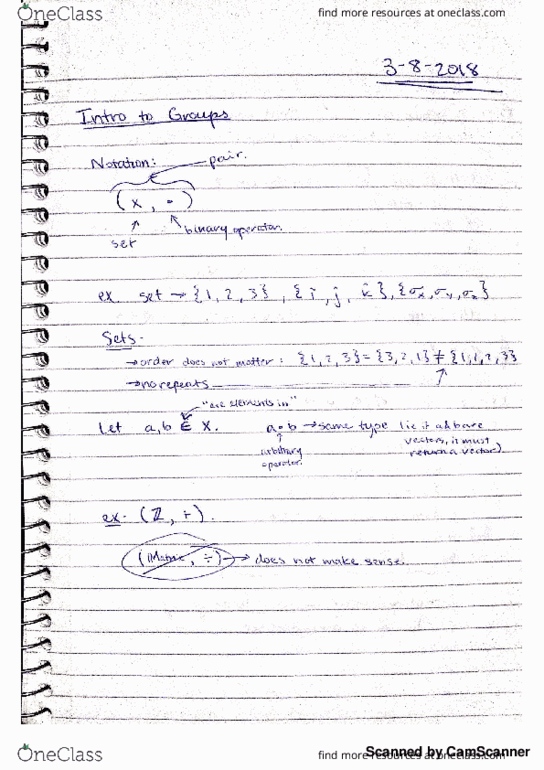 OneClass
find more resources at oneclass.com
3-8-2018
Intro to Groups
Notation: pair.
(x, •)
set binary operator.
ex. set → {1, 2, 3}, {î, ĵ, k̂}, {σx, σy, σz}
Sets-
→ order does not matter: {1, 2, 3} = {3, 2, 1} ≠ {1, 1, 2, 3}
→ no repeats
"are elements in"
Let a, b ∈ X. a • b → same type (ie if a & b are
arbitrary operator. vectors, it must
return a vector)
ex- (ℤ, +).
(Matrix, ÷) → does not make sense.
OneClass
find more resources at oneclass.com
Scanned by CamScanner